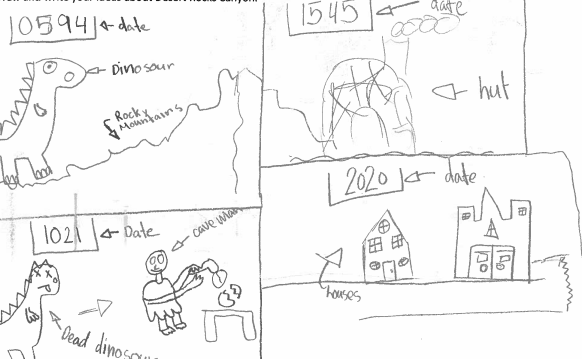 and write your ideas about Desert Rocks Canyon.
10594 date
Dinosour
Rocky
Mountains
1545 date
hut
1021 Date
cave man
Dead
2020 date
houses